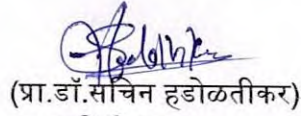 (प्रा.डॉ.सचिन हडोळतीकर)